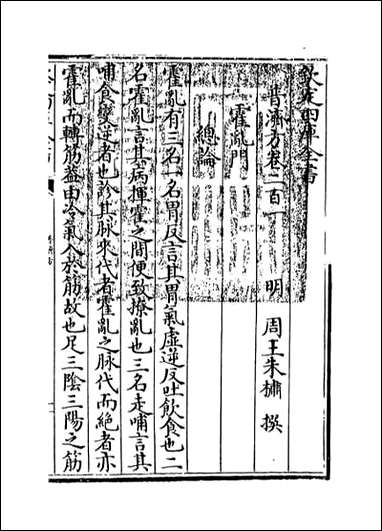 欽定四庫全書
普濟方卷二百一　明　周王朱橚　撰
霍亂門
總論
霍亂有三名一名胃反言其胃氣虛逆反吐飲食也二
名霍亂言其病揮霍之間便致撩亂也三名走哺言其
哺食變逆者也診其脉來代者霍亂之脉代而絶者亦
霍亂而轉筋蓋由冷氣入於筋故也足三陰三陽之筋